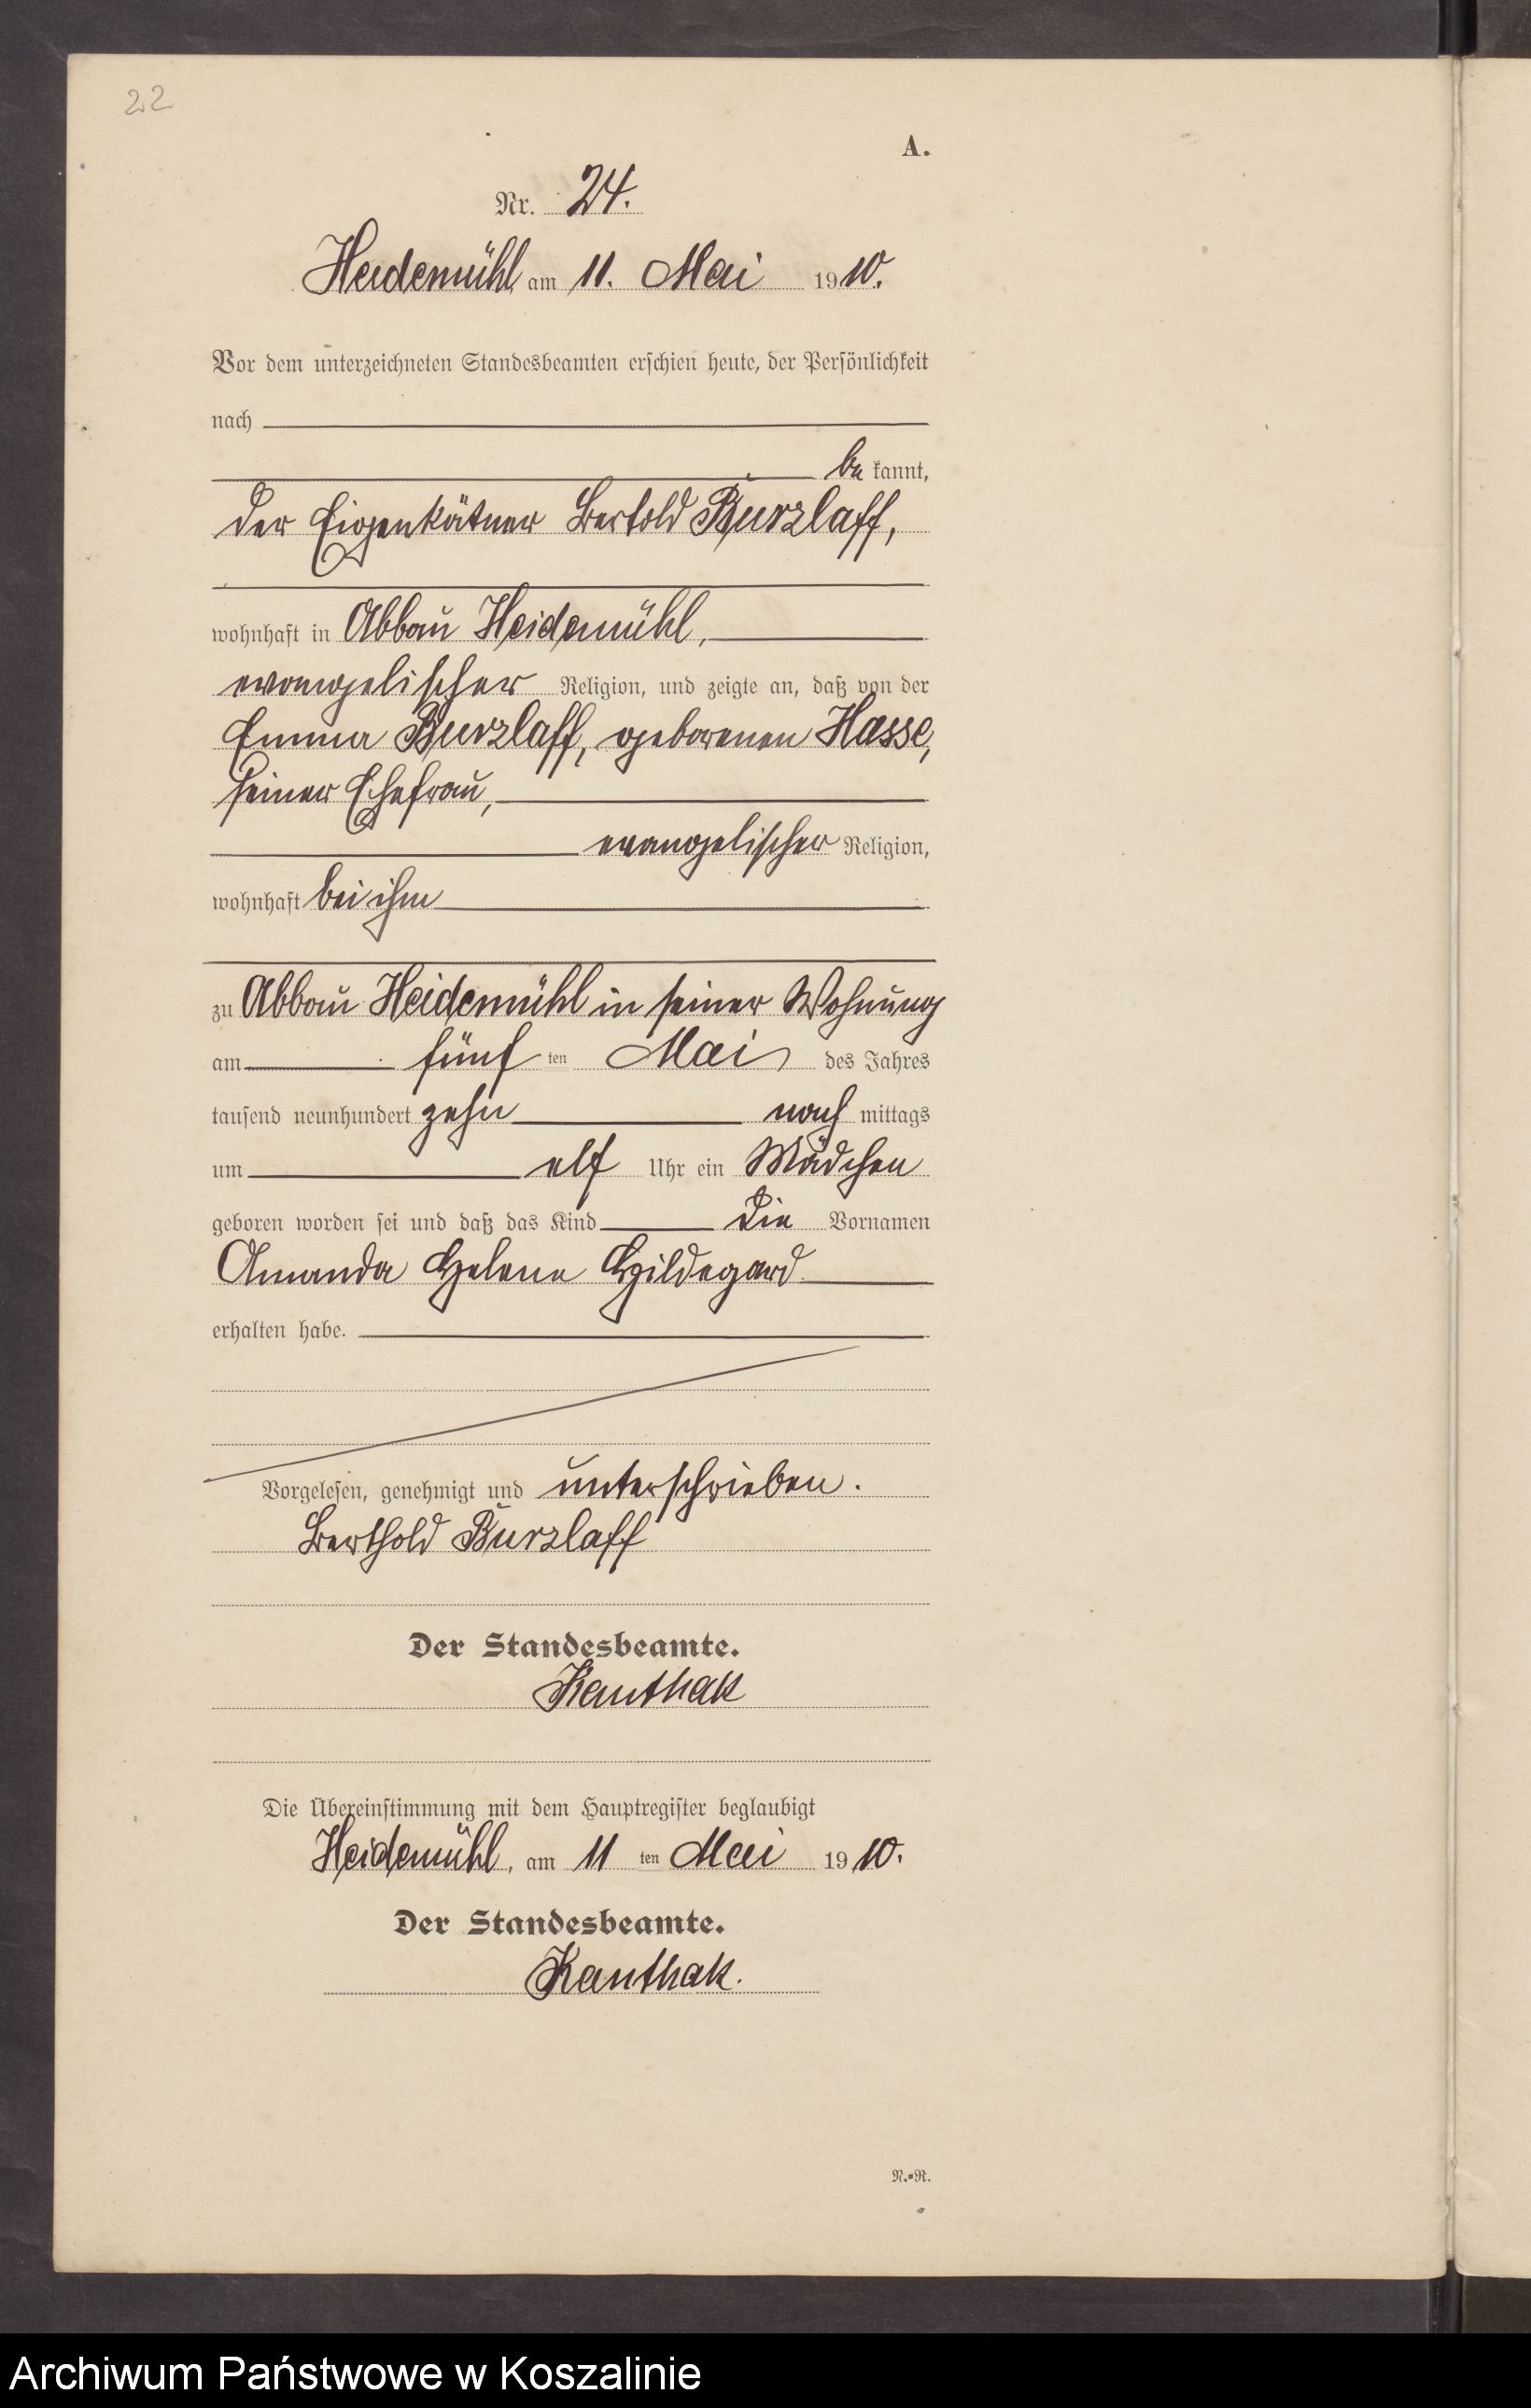 22
A.
Nr. 24.
Heidemühl am 11. Mai 1910.
Vor dem unterzeichneten Standesbeamten erschien heute, der Persönlichkeit
nach
be kannt,
der Eigenkätner Bertold Burzlaff,
wohnhaft in Abbau Heidemühl,
evangelischer Religion, und zeigte an, daß von der
Emma Burzlaff, geborenen Hasse,
seiner Ehefrau,
evangelischer Religion,
wohnhaft bei ihm
zu Abbau Heidemühl in seiner Wohnung
am fünf ten Mai des Jahres
tausend neunhundert zehn nach mittags
um elf Uhr ein Mädchen
geboren worden sei und daß das Kind die Vornamen
Amanda Helene Hildegard
erhalten habe.
Vorgelesen, genehmigt und unterschrieben.
Berthold Burzlaff
Der Standesbeamte.
Kanthak
Die Übereinstimmung mit dem Hauptregister beglaubigt
Heidemühl, am 11 ten Mai 1910.
Der Standesbeamte.
Kanthak.
N.=R.
Archiwum Państwowe w Koszalinie